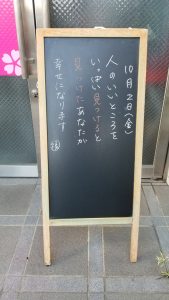 10月2日(金)
人のいいところを
いっぱい見つけると
見つけたあなたが
幸せになります